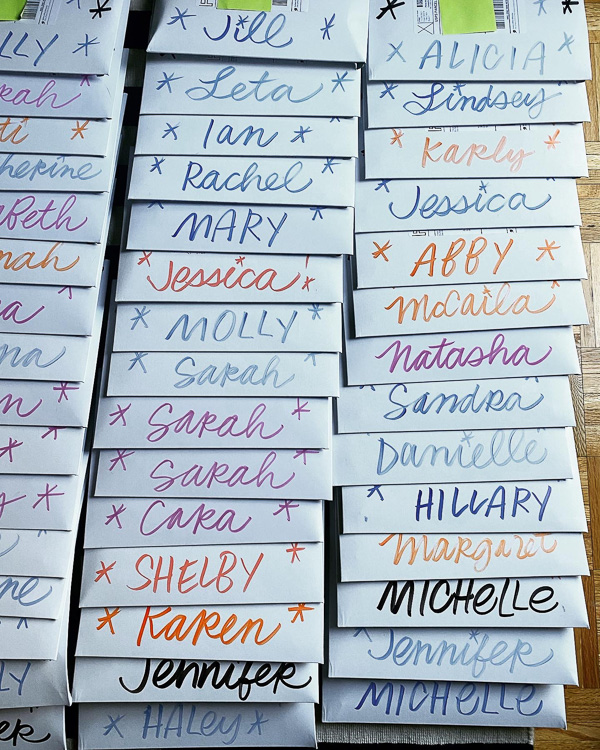 LLY
rah
ti
herine
Beth
nah
a
na
n
ne
LY
er
Jill
Leta
Ian
Rachel
MARY
Jessica
MOLLY
Sarah
Sarah
Sarah
Cara
SHELBY
Karen
Jennifer
HALey
ALICIA
Lindsey
Karly
Jessica
ABBY
McCaila
Natasha
Sandra
Danielle
HILLARY
Margaret
MICHELLE
Jennifer
MICHELLE